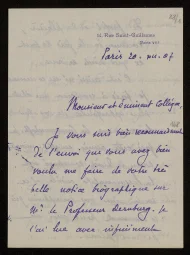 11, Rue Saint-Guillaume
Paris 20. XII. 07
Monsieur et éminent Collègue,
Je vous suis bien reconnaissant
de l'envoi que vous avez bien
voulu me faire de votre très
belle notice biographique sur
M. le Professeur Dernburg. Je
l'ai lue avec infiniment